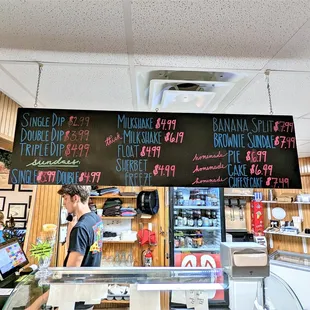 SINGLE DIP $2.99
DOUBLE DIP $3.99
TRIPLE DIP $4.99
sundaes
SINGLE $3.99 DOUBLE $4.99
MILKSHAKE $4.99
thick MILKSHAKE $6.19
FLOAT $4.99
SURBET
FREEZE $4.99
BANANA SPLIT $7.99
BROWNIE SUNDAE $7.99
homemade PIE $6.99
homemade CAKE $6.99
homemade CHEESECAKE $7.49